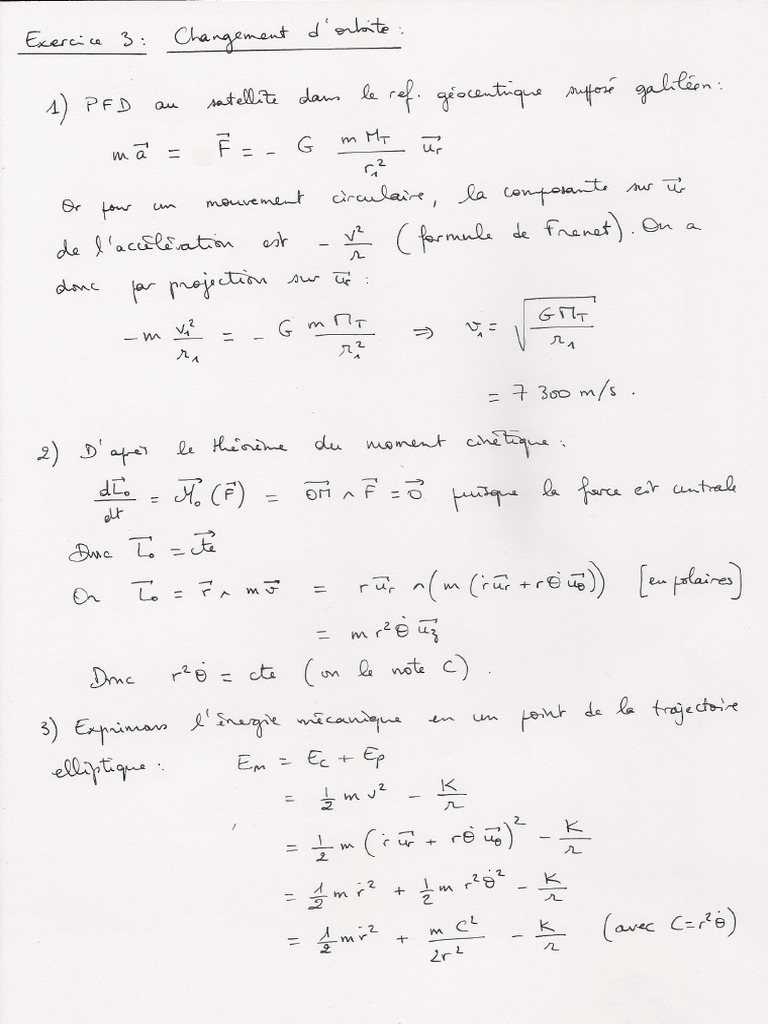 Exercice 3 : Changement d'orbite :
1) PFD au satellite dans le ref. géocentrique supposé galiléen :
m a⃗ = F⃗ = - G (m M_T / r₁²) u⃗r
Or pour un mouvement circulaire, la composante sur u⃗r
de l'accélération est - v²/r (formule de Frenet). On a
donc par projection sur u⃗r :
-m v₁²/r₁ = - G m M_T / r₁² ⇒ v₁ = √(G M_T / r₁)
= 7 300 m/s.
2) D'après le théorème du moment cinétique :
dL⃗₀/dt = M⃗₀(F⃗) = OM⃗ ∧ F⃗ = 0⃗ puisque la force est centrale
Donc L⃗₀ = cte⃗
Or L⃗₀ = r⃗ ∧ m v⃗ = r u⃗r ∧ (m (ṙ u⃗r + r θ̇ u⃗θ)) [en polaires]
= m r² θ̇ u⃗z
Donc r² θ̇ = cte (on le note C).
3) Exprimons l'énergie mécanique en un point de la trajectoire
elliptique : Em = Ec + Ep
= 1/2 m v² - K/r
= 1/2 m (ṙ u⃗r + r θ̇ u⃗θ)² - K/r
= 1/2 m ṙ² + 1/2 m r² θ̇² - K/r
= 1/2 m ṙ² + m C²/2r² - K/r (avec C = r² θ̇)